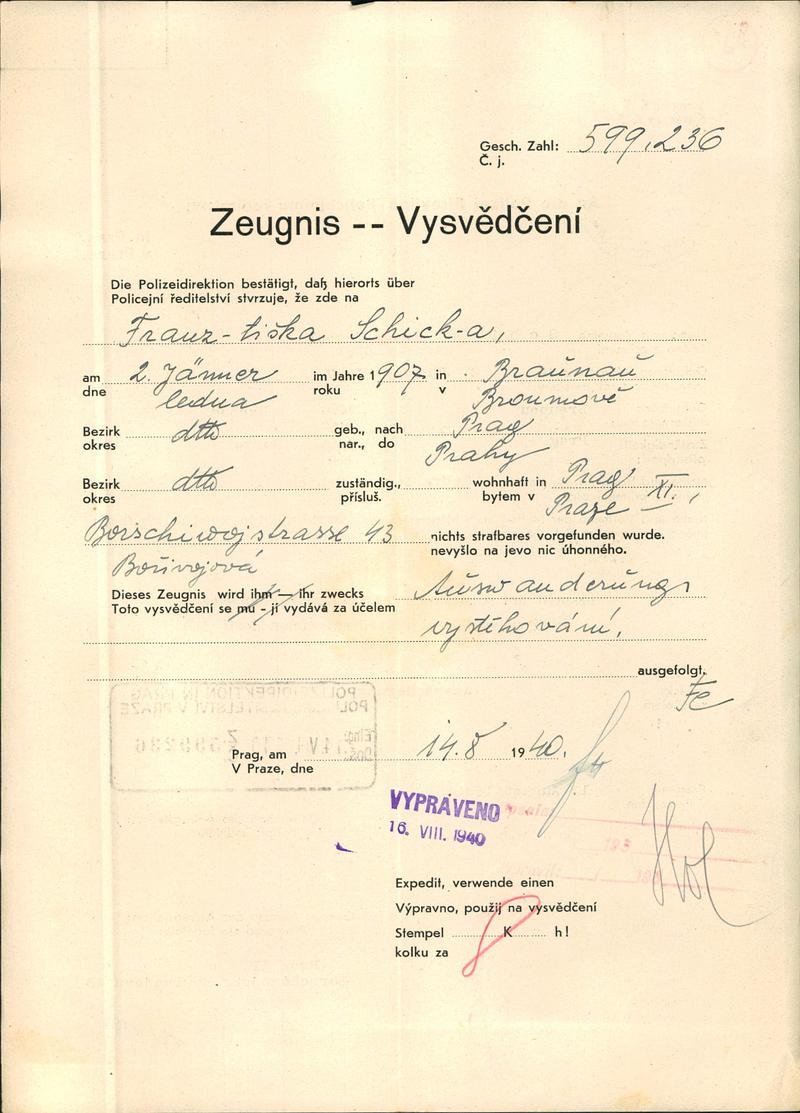 Gesch. Zahl: 599.236
Č. j.
Zeugnis -- Vysvědčení
Die Polizeidirektion bestätigt, daß hierorts über
Policejní ředitelství stvrzuje, že zde na
Franz-tiška Schick-a,
am 2. Jänner im Jahre 1907 in Braunau
dne ledna roku v Broumově
Bezirk dtto geb., nach Prag
okres nar., do Prahy
Bezirk dtto zuständig., wohnhaft in Prag XI.,
okres přísluš. bytem v Praze
Borschiwojstrasse 43 nichts strafbares vorgefunden wurde.
Bořivojová nevyšlo na jevo nic úhonného.
Dieses Zeugnis wird ihm — ihr zwecks Auswanderung
Toto vysvědčení se mu - jí vydává za účelem
vystěhování.
ausgefolgt.
Fe
POLIZEIDIREKTION IN PRAG
POLICEJNÍ ŘEDITELSTVÍ V PRAZE
Prag, am 14.8 1940.
V Praze, dne
VYPRAVENO
16. VIII. 1940
Hol
Expedit, verwende einen
Výpravno, použij na vysvědčení
Stempel K 8 h!
kolku za